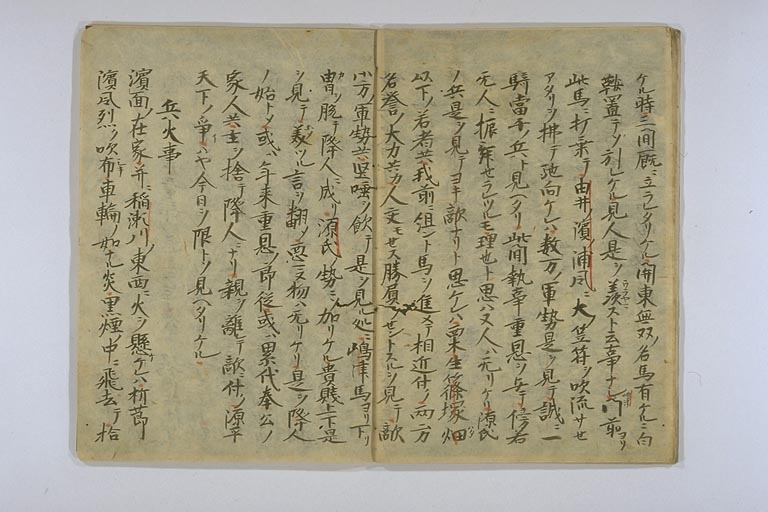 ケル時三間厩ニ立ラレタリケル関東無双ノ名馬有ケルニ白
鞍置テソ引レケル見人是ヲ羨スト云事ナシ門前ヨリ
此馬ニ打乗テ由井ノ濱ノ浦風ニ大笠符ヲ吹流サセ
アタリヲ拂テ馳向ケレハ数万ノ軍勢是ヲ見テ誠ニ一
騎當千ノ兵ト見ヘタリ此間執事重恩ヲ與テ傍若
无人ニ振舞セラレツルモ理也ト思ハヌ人ハ无リケリ源氏
ノ兵是ヲ見テヨキ敵ナリト思ケレハ栗生篠塚畑
以下ノ若者共我前ニ組ント馬ヲ進メテ相近付ク両方
名誉ノ大力共カ人交モセス勝負ヲセントスルヲ見テ敵
御方ノ軍勢共堅唾ヲ飲テ是ヲ見ル処ニ嶋津馬ヨリ下リ
冑ヲ脱テ降人ニ成リ源氏ノ勢ニソ加リケル貴賤上下是
ヲ見テ義ツル言ヲ翻シ悪ヌ物ハ无リケリ是ヲ降人
ノ始トシテ或ハ年来重恩ノ郎従或ハ累代奉公ノ
家人共主ヲ捨テ降人ニナリ親ヲ離テ敵ニ付ク源平
天下ノ争ハヤ今日ヲ限トソ見ヘタリケル
兵火事
濱面ノ在家并ニ稲瀬川ノ東西ニ火ヲ懸ケレハ折節
濱風烈ク吹布車輪ノ如ナル炎黒煙ノ中ニ飛去テ拾